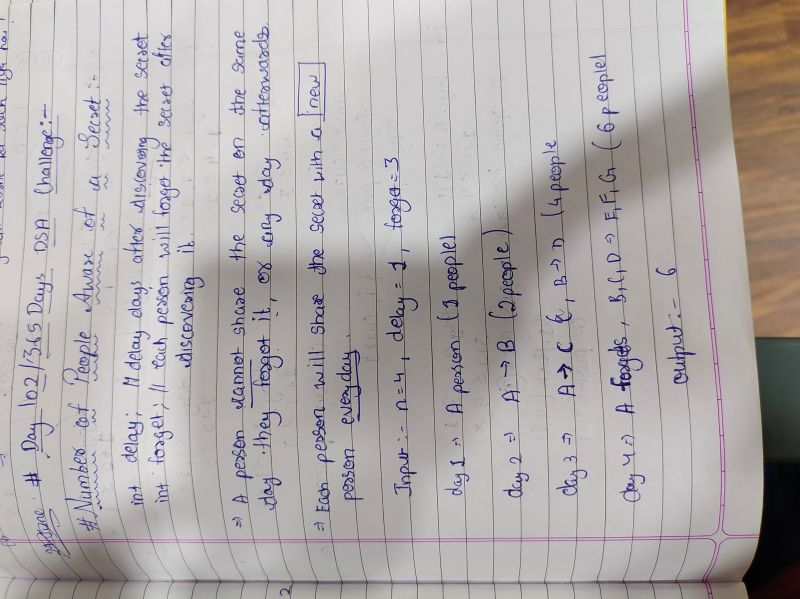 # Day 102/365 Days DSA Challenge:-
# Number of People Aware of a Secret:-
int delay; // delay days after discovering the secret
int forget; // each person will forget the secret after
discovering it.
⇒ A person cannot share the secret on the same
day they forgot it, or any day afterwards.
⇒ Each person will share the secret with a new
person everyday.
Input:- n=4, delay = 1, forget=3
day 1 ⇒ A person (1 people)
day 2 ⇒ A → B (2 people)
day 3 ⇒ A → C &, B → D (4 people
day 4 ⇒ A forgets, B, C, D ⇒ E, F, G (6 people)
output:- 6
2